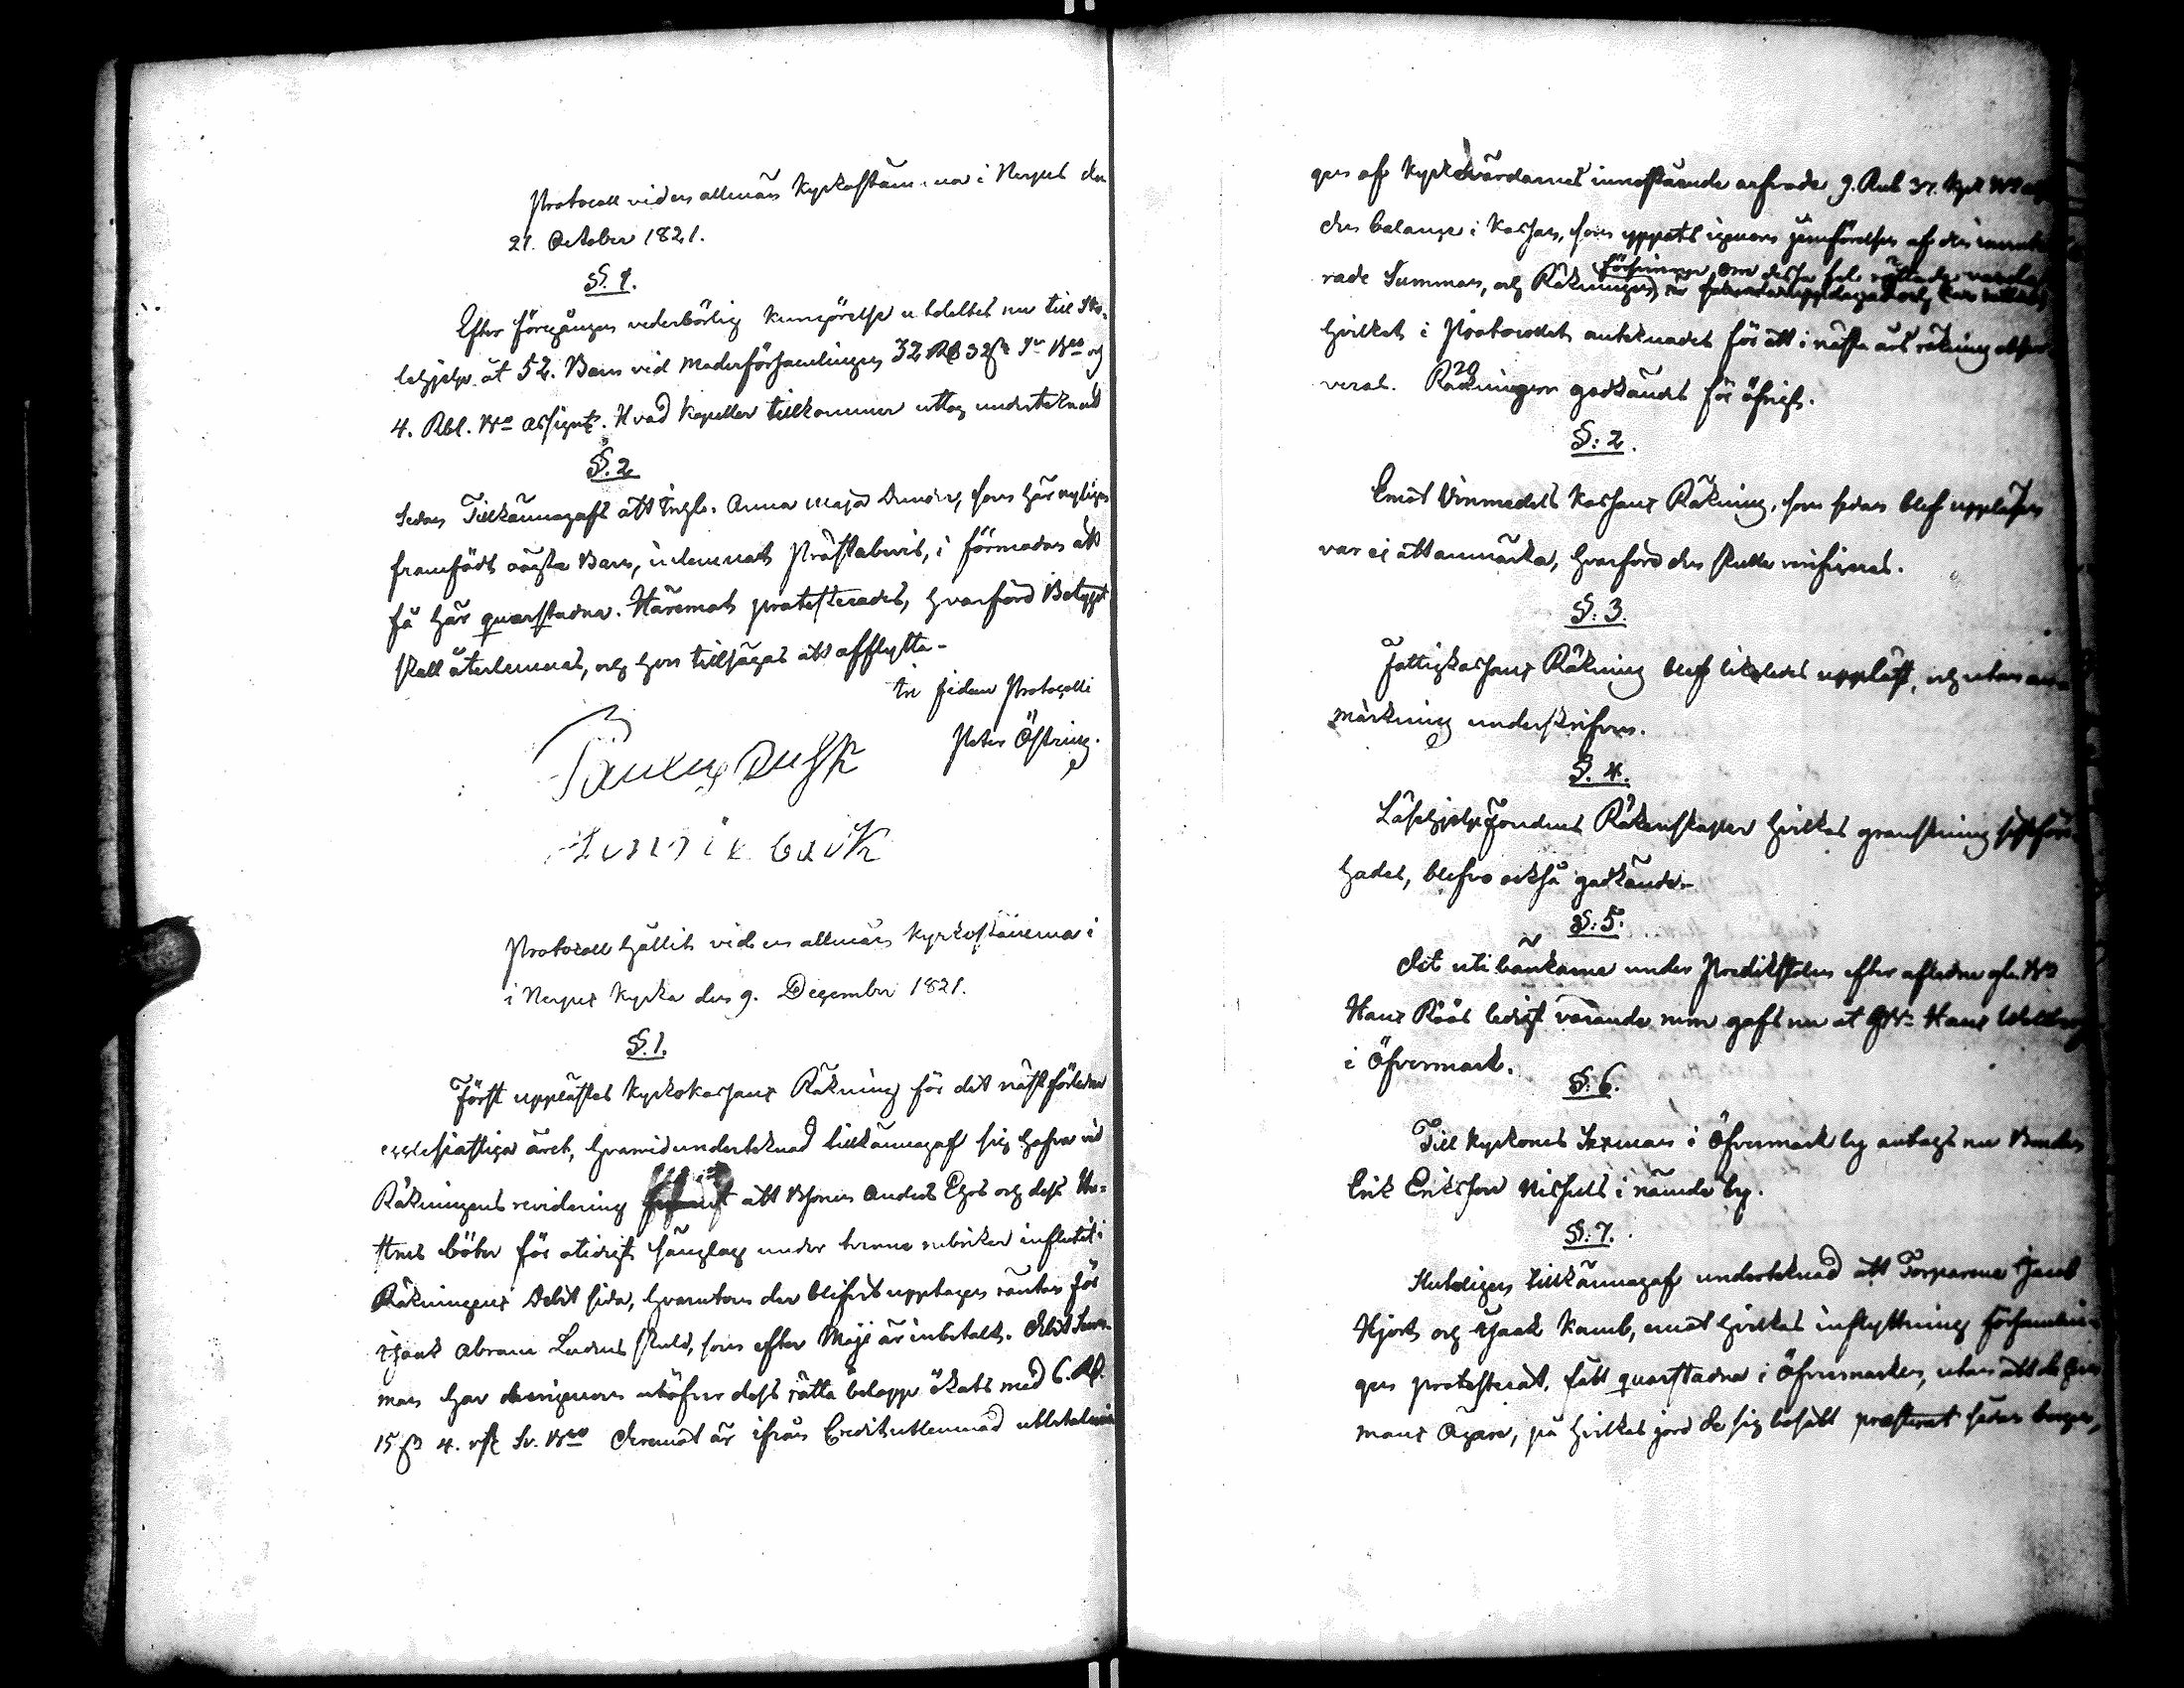 Protocoll vid en allmän Kyrkostämma i Nerpes den
21. October 1821.
§. 1.
Efter föregången vederbörlig kungörelse utdeltes nu till Sko-
lehjelp åt 52. Barn vid Moderförsamlingen 32 Rd 32 sk Sv. Bco och
4. Rbl. Bco Assign. Hvad Capeller tillkommer uttog undertecknad
§. 2
Sedan Tillkännagafs att Inhs. Anna Maja, som här nyligen
framfödt oäckta Barn, inlemnat Prästabevis, i förmodan att
få här quarstadna. Häremot protesterades, hvarföre Betyget
skall återlemnas, och hon tillsägas att afflytta.
In fidem Protocolli
Peter Östring.
Protocoll hållit vid en allmän Kyrkostämma i
i Nerpes Kyrka den 9. December 1821.
§. 1.
Först upplästes Kyrkokassans Räkning för det näst förledne
ecclesiastiga året, hvarvid undertecknad tillkännagaf sig hafva vid
Räkningens revidering att Bonen Anders och dess Hu-
strus böter för otidigt sänglag under denna rubriken influtit i
Räkningens Debet sida, hvarutom der blifvit upptagen räntan för
Isaak Abram skuld, som efter är inbetalt. Debet Sum-
man har derigenom utöfver dess rätta belopp ökats med 6. Rd.
15 sk 4. rst Sv. Bco Deremot är ifrån Credit utlemnad utbetalnin
gen af Kyrkovärdarnes innestående arfvode 9. Rub 37. Kop. Bco
den balance i Kassan, som uppstått igenom jemförelsen af den
rade Summan, och Räkningen,
hvilket i Protocollet antecknades för att i nästa års räkning obser-
veras. Räkningen godkändes för öfrigt.
§: 2.
Emot Vinmedels Kassans Räkning, som sedan blef uppläsen
var ej att anmärka, hvarföre den skulle verificeras.
§: 3.
Fattigkassans Räkning blef likaledes uppläst, och utan an-
märkning underskrifven.
§. 4.
Läsehjelps Fondens Räkenskaper hvilkas granskning
hades, blefvo också godkände.
§: 5.
Det uti bänkarne under Predikstolen efter afledne gln Bn
Hans Röös ledigt varande rum gafs nu åt Bn Hans
i Öfvermark.
§: 6.
Till Kyrkones Sexman i Öfvermark by antogs nu Bonden
Erik Eriksson Nissuls i nämde by.
§: 7.
Slutligen tillkännagaf undertecknad att Torparena Jacob
Hjort och Isaak Kamb, emot hvilkas inflyttning Församlin-
gen protesterat, fått quarstadna i Öfvermarken, utan att de hem-
mans Ägare, på hvilkas jord de sig bosatt præsterat sådan borgen,